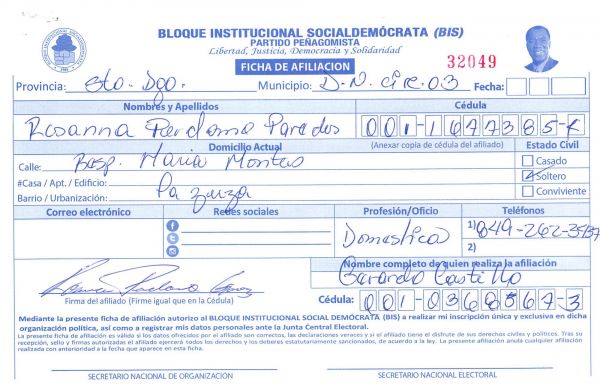 BLOQUE INSTITUCIONAL SOCIALDEMÓCRATA (BIS)
PARTIDO PEÑAGOMISTA
Libertad, Justicia, Democracia y Solidaridad
FICHA DE AFILIACION
32049
Provincia: Sto. Dgo. Municipio: D.N. Circ. 03 Fecha:
Nombres y Apellidos Cédula
Rosanna Perdomo Paredes 001-1677385-
Domicilio Actual (Anexar copia de cédula del afiliado) Estado Civil
Calle: Maria Montes Casado
#Casa / Apt. / Edificio: Soltero
Barrio / Urbanización: La zurza Conviviente
Correo electrónico Redes sociales Profesión/Oficio Teléfonos
Domestica 1) 849-262-
2)
Nombre completo de quien realiza la afiliación
Gerardo Castillo
Firma del afiliado (Firme igual que en la Cédula) Cédula: 001-0368367-3
Mediante la presente ficha de afiliación autorizo al BLOQUE INSTITUCIONAL SOCIAL DEMÓCRATA (BIS) a realizar mi inscripción única y exclusiva en dicha
organización política, así como a registrar mis datos personales ante la Junta Central Electoral.
La presente ficha de afiliación es válido si los datos ofrecidos por el afiliado son correctos, las declaraciones veraces y si el afiliado tiene el disfrute de sus derechos civiles y políticos. Tras su
recepción, sello y firmas autorizadas el afiliado ejercerá todos los derechos y los deberes estatutariamente sancionados, de acuerdo a la ley. La presente afiliación anula cualquier afiliación
realizada con anterioridad a la fecha que aparece en esta ficha.
SECRETARIO NACIONAL DE ORGANIZACIÓN SECRETARIO NACIONAL ELECTORAL